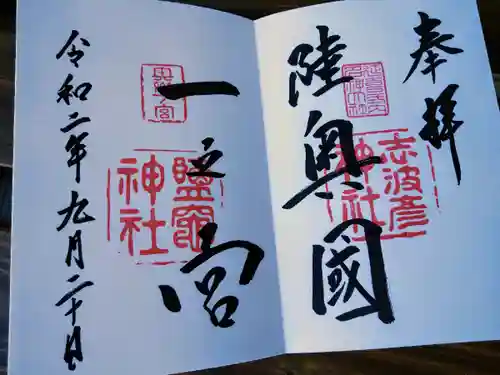 奉拝
陸奥國
志波彦
神社
一之宮
鹽竈
神社
令和二年九月二十日